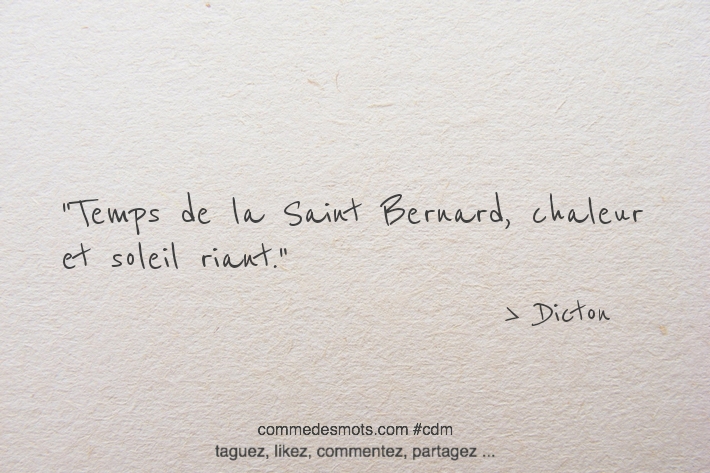 "Temps de la Saint Bernard, chaleur
et soleil riant."
> Dicton
commedesmots.com #cdm
taguez, likez, commentez, partagez ...